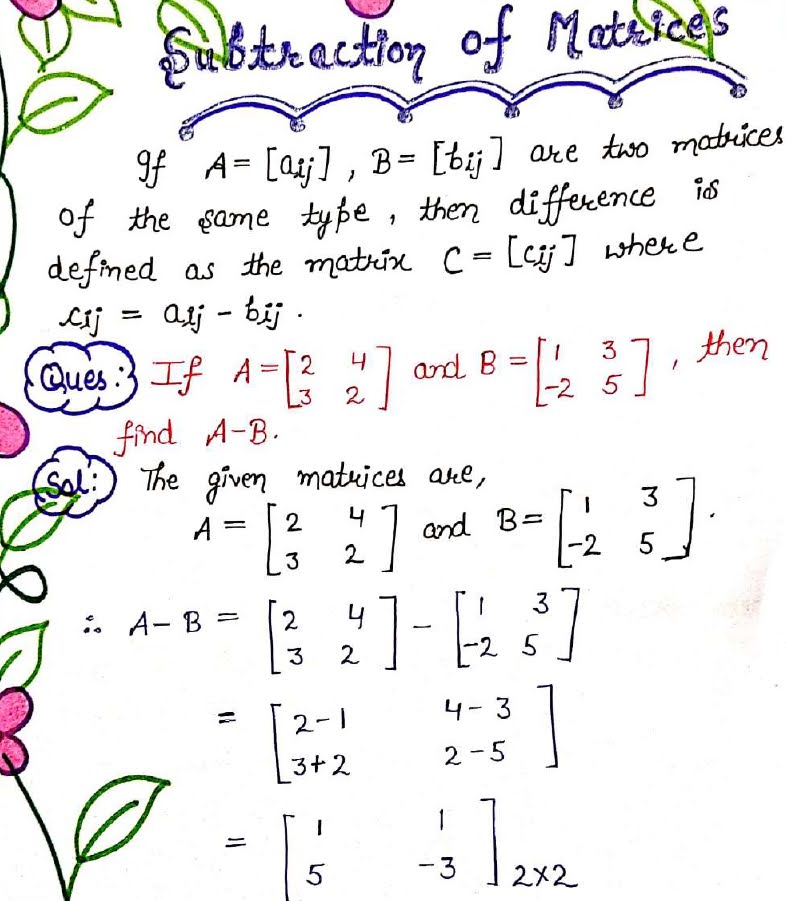 Subtraction of Matrices
If A = [aij], B = [bij] are two matrices
of the same type, then difference is
defined as the matrix C = [cij] where
cij = aij - bij.
Ques: If A = [2 4; 3 2] and B = [1 3; -2 5], then
find A-B.
Sol: The given matrices are,
A = [2 4; 3 2] and B = [1 3; -2 5].
∴ A - B = [2 4; 3 2] - [1 3; -2 5]
= [2-1 4-3; 3+2 2-5]
= [1 1; 5 -3] 2×2